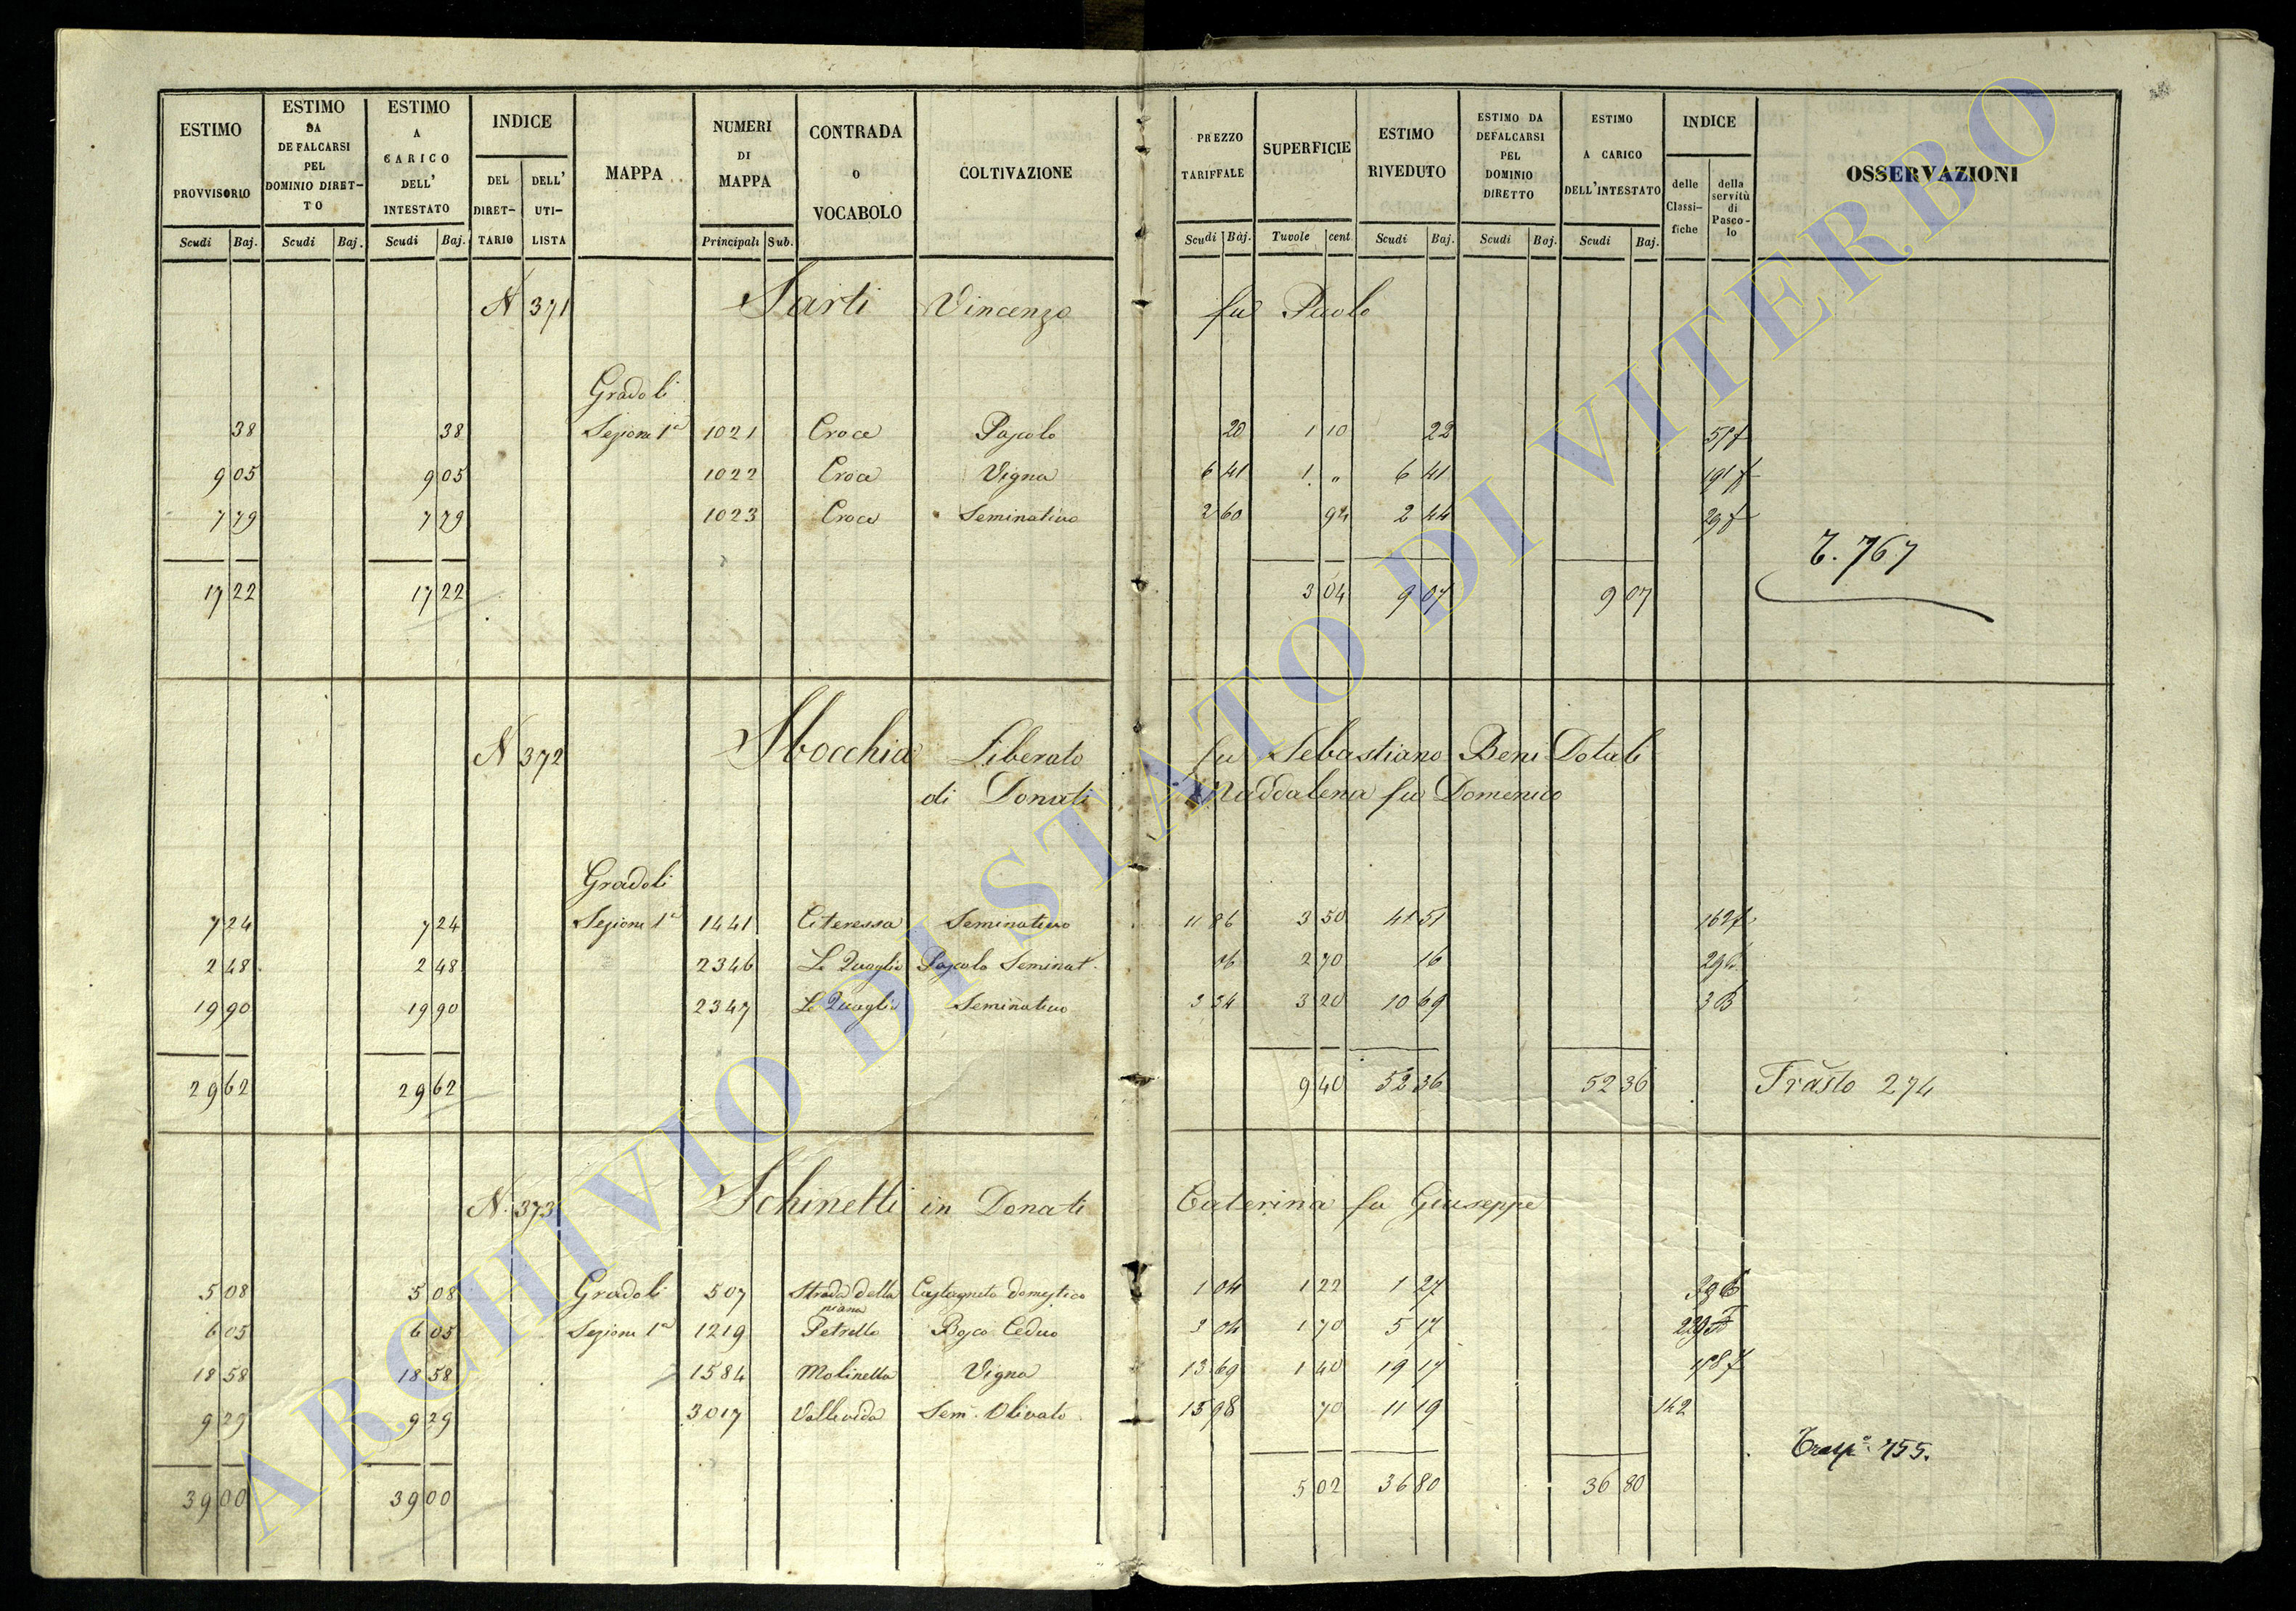 ESTIMO PROVVISORIO Scudi Baj.
ESTIMO DA DEFALCARSI PEL DOMINIO DIRETTO Scudi Baj.
ESTIMO A CARICO DELL' INTESTATO Scudi Baj.
INDICE DEL DIRETTARIO DELL' UTILISTA
MAPPA
NUMERI DI MAPPA Principali Sub.
CONTRADA O VOCABOLO
COLTIVAZIONE
PREZZO TARIFFALE Scudi Baj.
SUPERFICIE Tavole cent
ESTIMO RIVEDUTO Scudi Baj.
ESTIMO DA DEFALCARSI PEL DOMINIO DIRETTO Scudi Baj.
ESTIMO A CARICO DELL'INTESTATO Scudi Baj.
INDICE delle Classifiche della servitù di Pascolo
OSSERVAZIONI
N 371 Sarti Vincenzo fu Paolo
Gradoli
38 38 Sezione 1a 1021 Croce Pascolo 20 1 10 22
9 05 9 05 1022 Croce Vigna 6 41 1 " 6 41
7 79 7 79 1023 Croce Seminativo 2 60 94 2 44
T. 767
17 22 17 22 3 04 9 07 9 07
N 372 Sbocchia Liberato fu Sebastiano Beni Dotali
di Donati Maddalena fu Domenico
Gradoli
7 24 7 24 Sezione 1a 1441 Citeressa Seminativo 11 86 3 50 41 51
2 48 2 48 2346 Le Quaglie Pascolo Seminat. 06 2 70 16
19 90 19 90 2347 Le Quaglie Seminativo 3 34 3 20 10 69
29 62 29 62 9 40 52 36 52 36 Trasto 274
N. 373 Schinelli in Donati Caterina fu Giuseppe
5 08 5 08 Gradoli 507 Strada della piana Castagneto domestico 1 04 1 22 1 27
6 05 6 05 Sezione 1a 1219 Petrello Bosco Ceduo 3 04 1 70 5 17
18 58 18 58 1584 Molinella Vigna 13 69 1 40 19 17
9 29 9 29 3017 Vallevida Sem. Olivato 15 98 70 11 19 142
Trasp.o 755.
39 00 39 00 5 02 36 80 36 80
ARCHIVIO DI STATO DI VITERBO